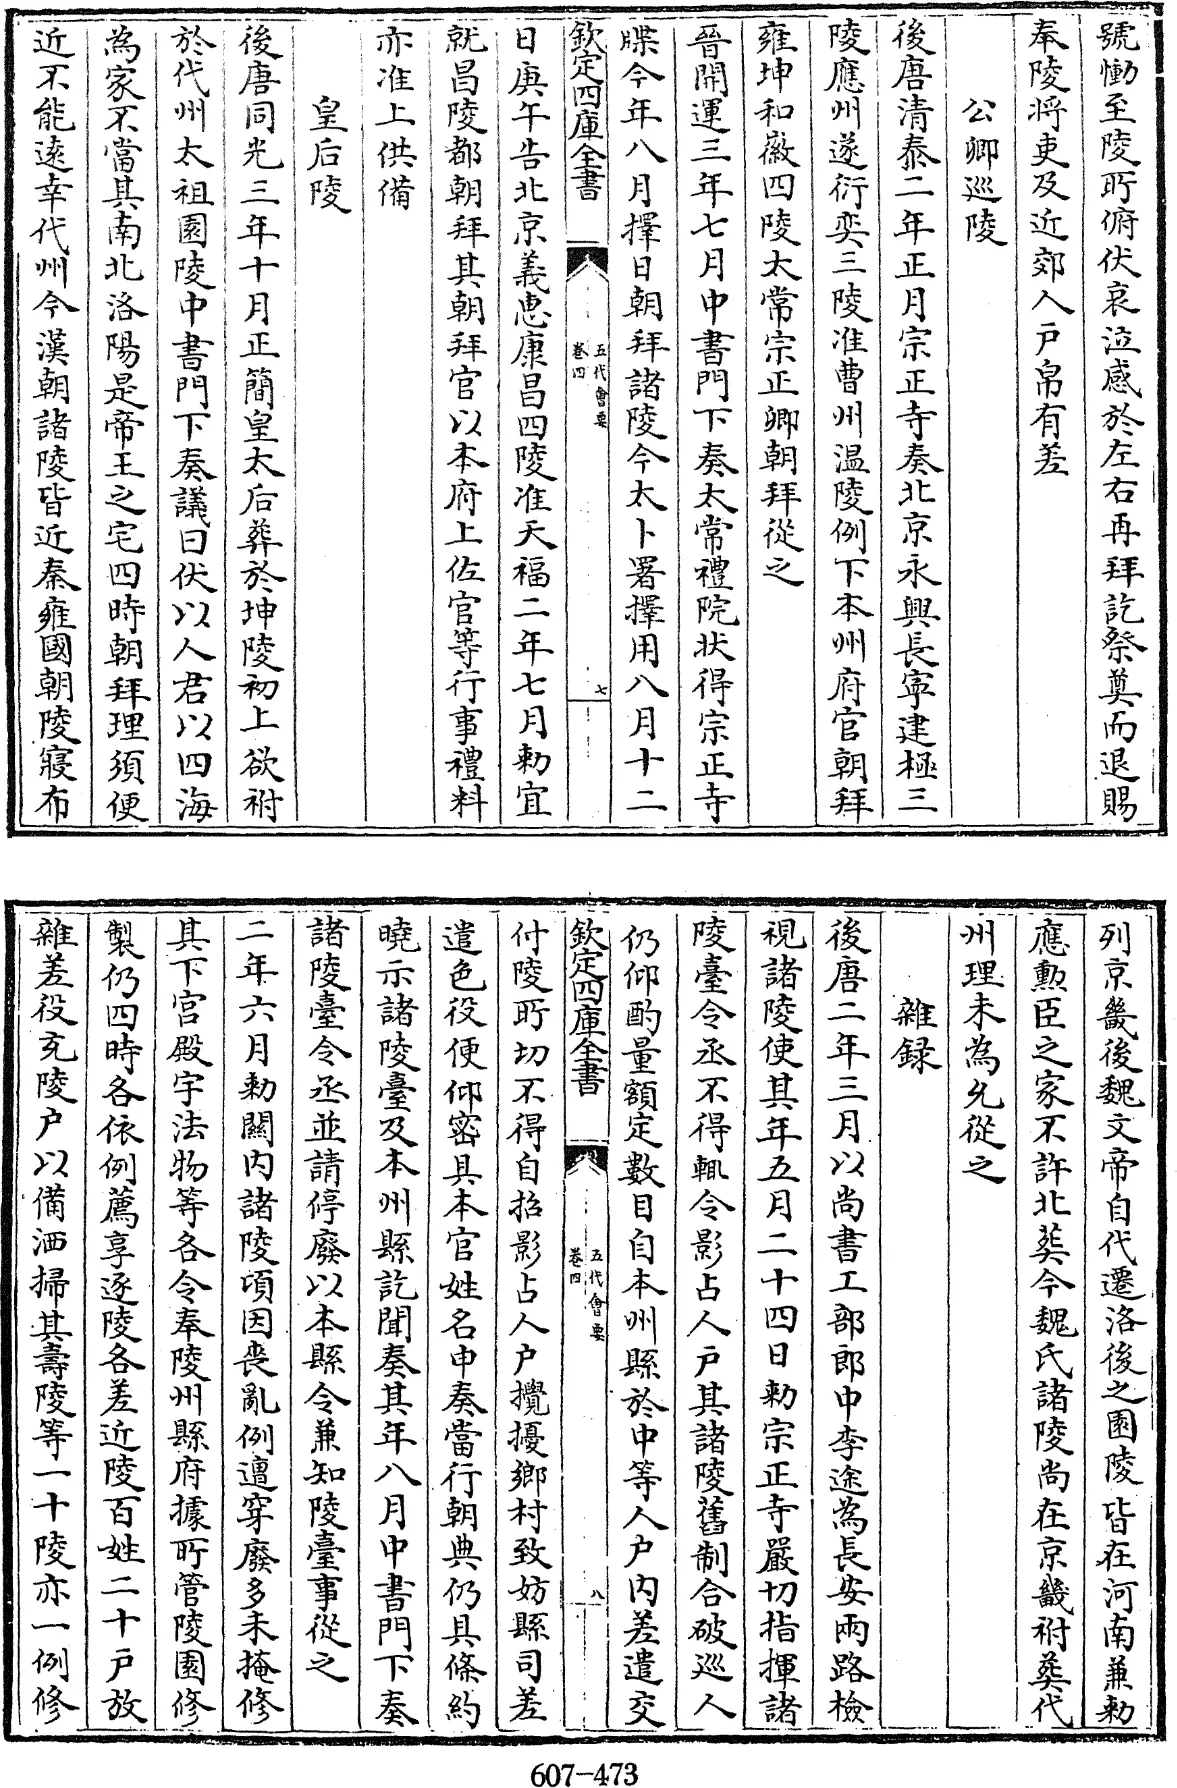 號慟至陵所俯伏哀泣感於左右再拜訖祭奠而退賜
奉陵將吏及近郊人戸帛有差
公卿巡陵
後唐清泰二年正月宗正寺奏北京永興長寜建極三
陵應州遂衍奕三陵准曹州温陵例下本州府官朝拜
雍坤和徽四陵太常宗正卿朝拜從之
晉開運三年七月中書門下奏太常禮院狀得宗正寺
牒今年八月擇日朝拜諸陵今太卜署擇用八月十二
欽定四庫全書
五代會要
卷四
七
日庚午告北京義惠康昌四陵准天福二年七月勅宜
就昌陵都朝拜其朝拜官以本府上佐官等行事禮料
亦准上供備
皇后陵
後唐同光三年十月正簡皇太后葬於坤陵初上欲祔
於代州太祖園陵中書門下奏議曰伏以人君以四海
為家不當其南北洛陽是帝王之宅四時朝拜理須便
近不能逺幸代州今漢朝諸陵皆近秦雍國朝陵寢布
列京畿後魏文帝自代遷洛後之園陵皆在河南兼勅
應勲臣之家不許北葬今魏氏諸陵尚在京畿祔葬代
州理未為允從之
雜録
後唐二年三月以尚書工部郎中李途為長安兩路檢
視諸陵使其年五月二十四日勅宗正寺嚴切指揮諸
陵臺令丞不得輒令影占人戸其諸陵舊制合破廵人
仍仰酌量額定數目自本州縣於中等人户内差遣交
欽定四庫全書
五代會要
卷四
八
付陵所切不得自招影占人户攪擾鄉村致妨縣司差
遣色役便仰密具本官姓名申奏當行朝典仍具條約
曉示諸陵臺及本州縣訖聞奏其年八月中書門下奏
諸陵臺令丞並請停廢以本縣令兼知陵臺事從之
二年六月勅闗内諸陵頃因喪亂例遭穿廢多未掩修
其下宫殿宇法物等各令奉陵州縣府據所管陵園修
製仍四時各依例薦享逐陵各差近陵百姓二十戸放
雜差役充陵户以備洒掃其壽陵等一十陵亦一例修
607-473